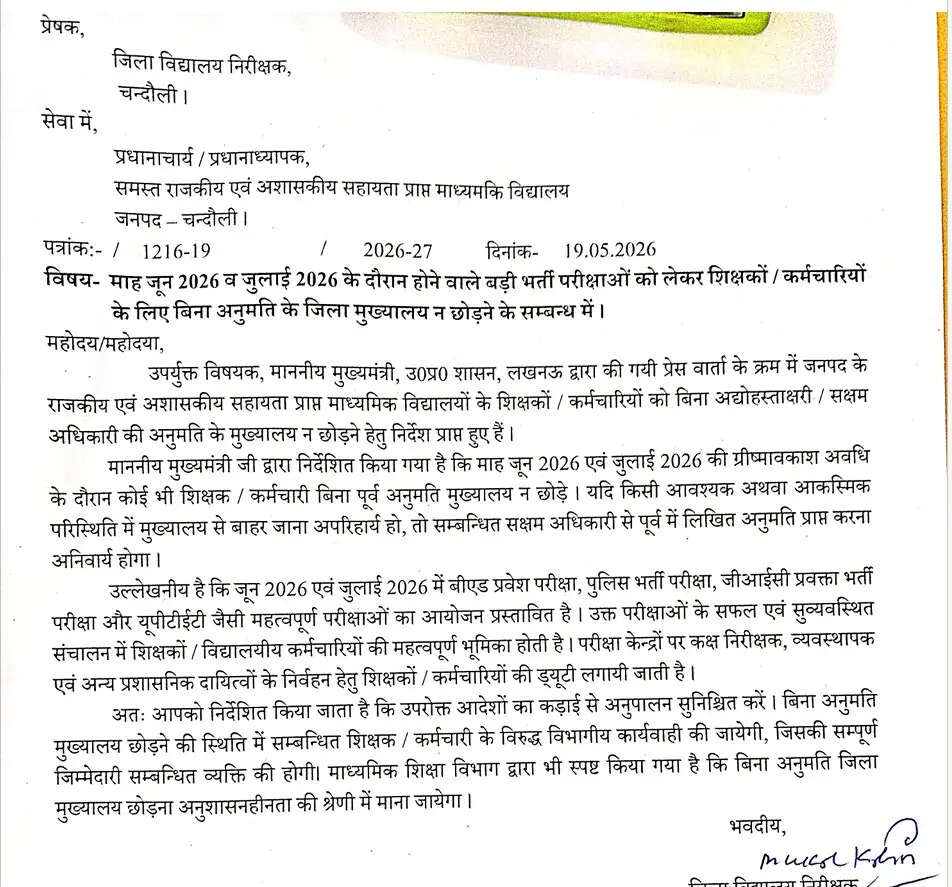 प्रेषक,
जिला विद्यालय निरीक्षक,
चन्दौली।
सेवा में,
प्रधानाचार्य / प्रधानाध्यापक,
समस्त राजकीय एवं अशासकीय सहायता प्राप्त माध्यमकि विद्यालय
जनपद – चन्दौली।
पत्रांक:- / 1216-19 / 2026-27 दिनांक- 19.05.2026
विषय- माह जून 2026 व जुलाई 2026 के दौरान होने वाले बड़ी भर्ती परीक्षाओं को लेकर शिक्षकों / कर्मचारियों
के लिए बिना अनुमति के जिला मुख्यालय न छोड़ने के सम्बन्ध में।
महोदय/महोदया,
उपर्युक्त विषयक, माननीय मुख्यमंत्री, उ0प्र0 शासन, लखनऊ द्वारा की गयी प्रेस वार्ता के क्रम में जनपद के
राजकीय एवं अशासकीय सहायता प्राप्त माध्यमिक विद्यालयों के शिक्षकों / कर्मचारियों को बिना अद्योहस्ताक्षरी / सक्षम
अधिकारी की अनुमति के मुख्यालय न छोड़ने हेतु निर्देश प्राप्त हुए हैं।
माननीय मुख्यमंत्री जी द्वारा निर्देशित किया गया है कि माह जून 2026 एवं जुलाई 2026 की ग्रीष्मावकाश अवधि
के दौरान कोई भी शिक्षक / कर्मचारी बिना पूर्व अनुमति मुख्यालय न छोड़े। यदि किसी आवश्यक अथवा आकस्मिक
परिस्थिति में मुख्यालय से बाहर जाना अपरिहार्य हो, तो सम्बन्धित सक्षम अधिकारी से पूर्व में लिखित अनुमति प्राप्त करना
अनिवार्य होगा।
उल्लेखनीय है कि जून 2026 एवं जुलाई 2026 में बीएड प्रवेश परीक्षा, पुलिस भर्ती परीक्षा, जीआईसी प्रवक्ता भर्ती
परीक्षा और यूपीटीईटी जैसी महत्वपूर्ण परीक्षाओं का आयोजन प्रस्तावित है। उक्त परीक्षाओं के सफल एवं सुव्यवस्थित
संचालन में शिक्षकों / विद्यालयीय कर्मचारियों की महत्वपूर्ण भूमिका होती है। परीक्षा केन्द्रों पर कक्ष निरीक्षक, व्यवस्थापक
एवं अन्य प्रशासनिक दायित्वों के निर्वहन हेतु शिक्षकों / कर्मचारियों की ड्यूटी लगायी जाती है।
अतः आपको निर्देशित किया जाता है कि उपरोक्त आदेशों का कड़ाई से अनुपालन सुनिश्चित करें। बिना अनुमति
मुख्यालय छोड़ने की स्थिति में सम्बन्धित शिक्षक / कर्मचारी के विरुद्ध विभागीय कार्यवाही की जायेगी, जिसकी सम्पूर्ण
जिम्मेदारी सम्बन्धित व्यक्ति की होगी। माध्यमिक शिक्षा विभाग द्वारा भी स्पष्ट किया गया है कि बिना अनुमति जिला
मुख्यालय छोड़ना अनुशासनहीनता की श्रेणी में माना जायेगा।
भवदीय,
जिला विद्यालय निरीक्षक